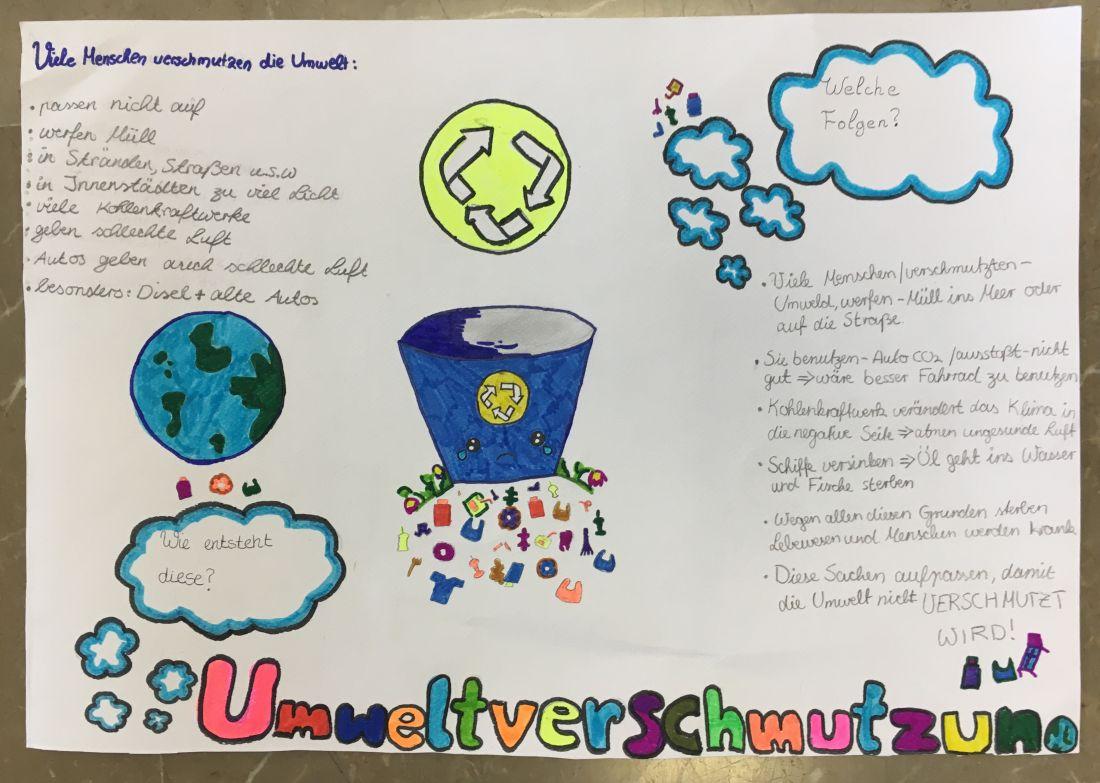 Viele Menschen verschmutzen die Umwelt:
• passen nicht auf
• werfen Müll
• in Stränden, Straßen u.s.w
• in Innenstädten zu viel Licht
• viele Kohlenkraftwerke
• geben schlechte Luft
• Autos geben auch schlechte Luft
• besonders: Disel + alte Autos
Wie entsteht
diese?
Welche
Folgen?
• Viele Menschen/verschmutzten-
Umweld, werfen-Müll ins Meer oder
auf die Straße
• Sie benutzen-Auto CO2/ausstoßt-nicht
gut ⇒ wäre besser Fahrrad zu benutzen
• Kohlenkraftwerk verändert das Klima in
die negative Seite ⇒ atmen ungesunde Luft
• Schiffe versinken ⇒ Öl geht ins Wasser
und Fische sterben
• Wegen allen diesen Grunden sterben
Lebewesen und Menschen werden krank
• Diese Sachen aufpassen, damit
die Umwelt nicht VERSCHMUTZT
WIRD!
Umweltverschmutzung